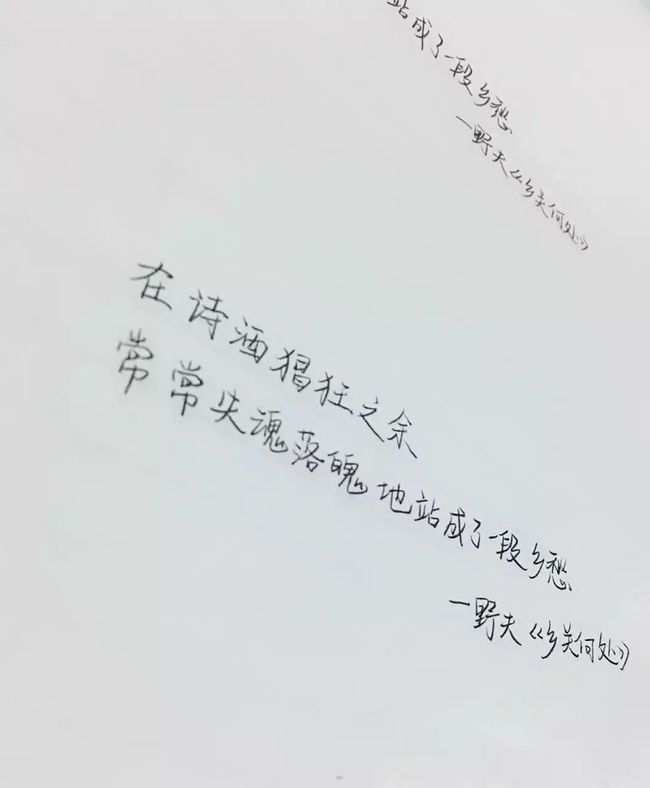 站成了一段乡愁
一野夫《乡关何处》
在诗酒猖狂之余
常常失魂落魄地站成了一段乡愁
一野夫《乡关何处》